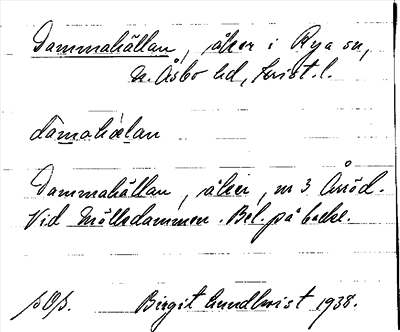 Dammahällan, åker i Rya sn,
n. Åsbo hd, Krist. l.
damahælan
Dammahällan, åker, nr 3 Årröd.
Vid Mölledammen. Bel. på backe.
Birgit Lundkvist 1938.